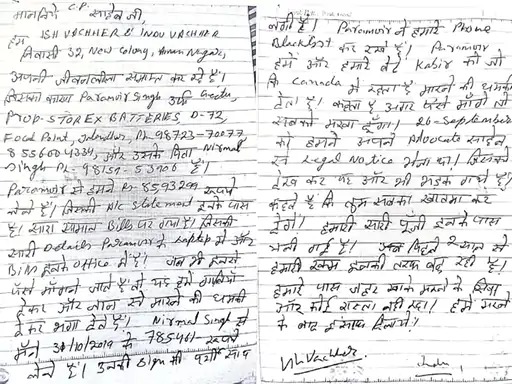 माननीय C.P. साहेब जी,
हम ISH VACHHER & INDU VACHHER
निवासी 32, New Colony,
अपनी जीवनलीला समाप्त कर रहे हैं।
जिसका कारण Paramvir Singh उर्फ
PROP-STOREX BATTERIES, D-72,
Focal Point, Jalandhar, Ph. 98723-70077
और उसके पिता Nirmal
Singh Ph
Paramvir से हमने Rs 8593299 रुपये
लेने हैं। जिसकी A/c Statement इनके पास
है। सारा सामान Bills पर गया है। जिसकी
सारी Details Paramvir के Laptop में और
Bill इनके Office में हैं। जब भी इनसे
पैसे माँगने जाते हैं तो यह हमें गालियाँ
देकर और जान से मारने की धमकी
देकर भगा देते हैं। Nirmal Singh से
मैंने 30/10/2019 के 785461 रुपये
लेने हैं। उनकी Sign की पर्ची साथ
लगी है। Paramvir ने हमारे Phone
Blacklist कर रखे हैं। Paramvir
हमें और हमारे बेटे Kabir को जो
कि Canada में रहता है मारने की धमकी
देता है। कहता है अगर पैसे माँगे तो
सबको मरवा दूँगा। 26-September
को हमने अपने Advocate साहेब
से Legal Notice भेजा था। जिसको
देख कर यह और भी भड़क गये हैं।
कहते हैं कि तुम सबका खात्मा कर
देंगे। हमारी सारी पूँजी इनके पास
चली गई है। पिछले साल से
हमारी रकम इनकी तरफ रह रही है।
हमारे पास जहर खाके मरने के सिवा
और कोई रास्ता नहीं रहा। हमें मरने
के बाद इंसाफ दिलायें।
Ish Vachher Indu